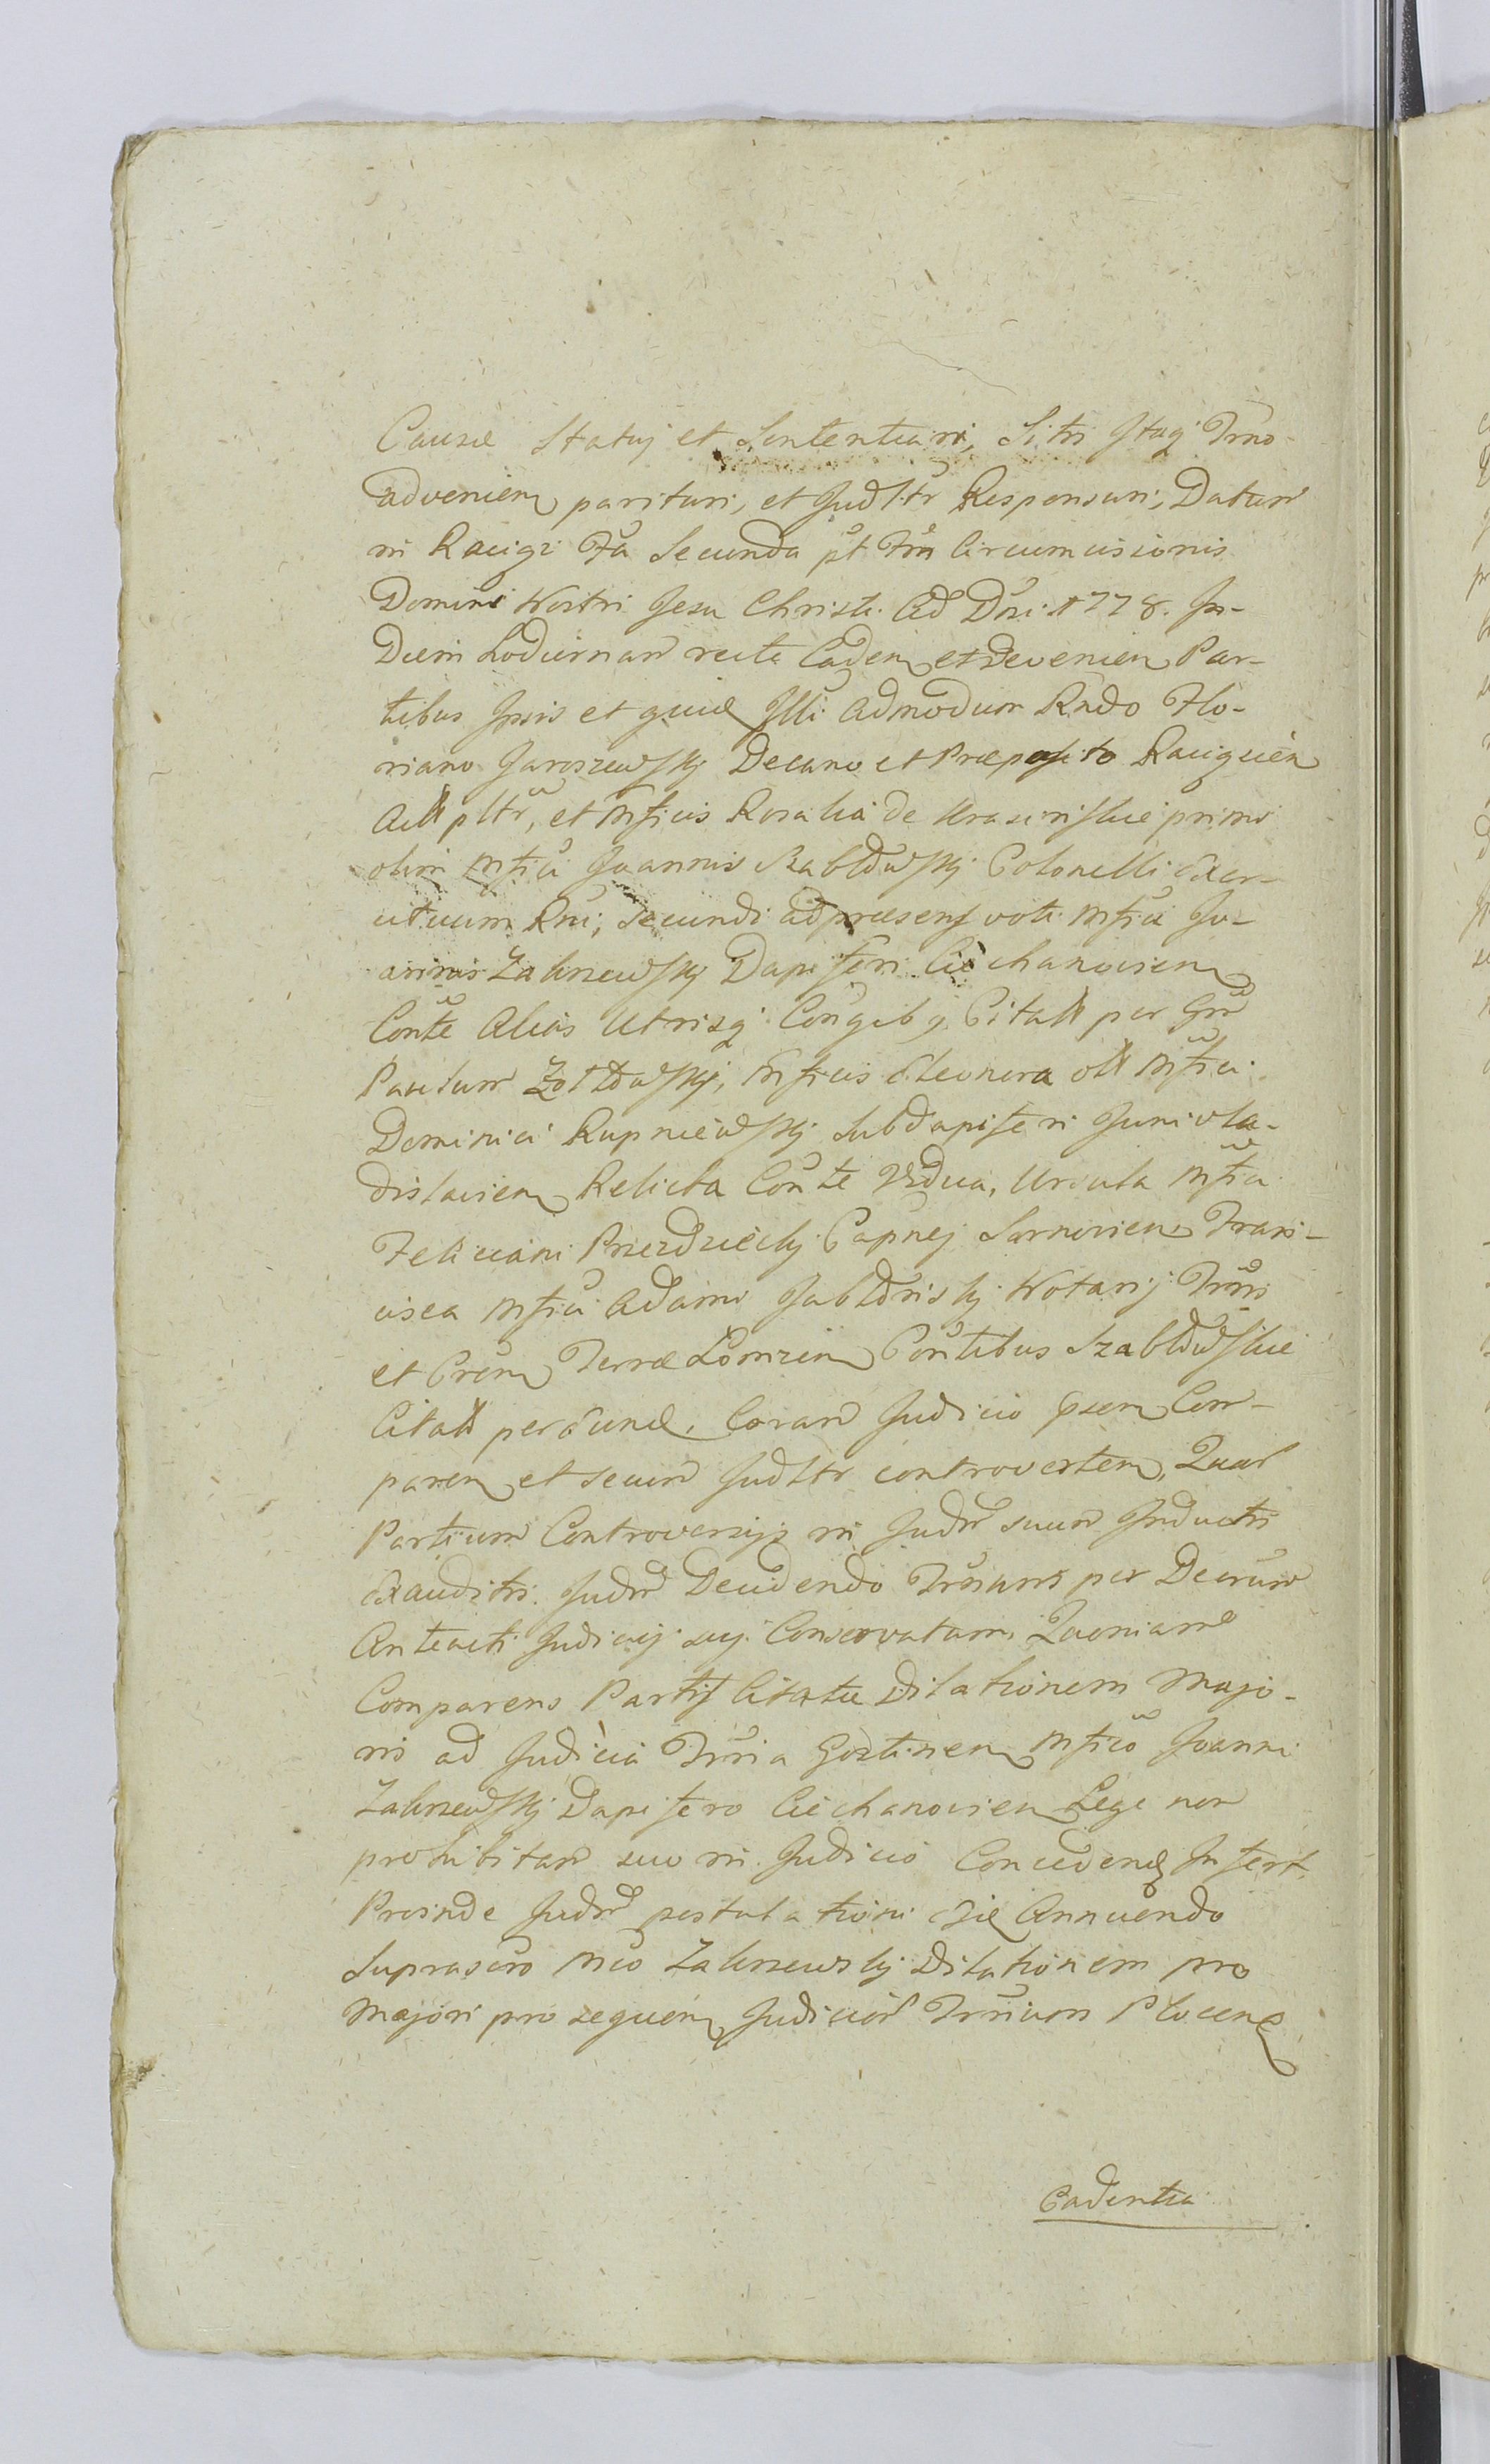 Causæ Statuj et Sententiari, Sitis Itaqȝ Trño
adveniem parituri, et Judltr Responsuri, Datum
in Raciąż Fã Secunda pt Fm Circumcisionis
Domini Nostri Jesu Christi Aõ Dni 1778. In
Diem hodiernam recte Caden et Devenien Par-
tibus Ipsis et quid Illi Admodum Rndo Flo-
riano Jaroszewskj Decano et Præposito Raciąscien
Act pltr, et Mficis Rosalia de Krasinskie primi
olim Mfici Joannis Szabłowskj Colonelli Exer-
cituum Rni, secundi ad præsens voti Mfici Jo-
annis Zakrzewskj Dapiferi Ciechanovien
Conte Alias Utrisqȝ Congibȝ Citatt per Gnd
Paulum Zołtowskj, Mficis Eleonora olt Mfici
Dominici Rupniewskj Subdapiferi Junivla-
dislavien Relicta Conte Vidua, Ursula Mfici
Feliciani Przezdzieckj Capnej Sarnovien Fran-
cisca Mfici Adami Jabłonskj Notarij Trris
et Cren Terræ Łomzen Contibus Szabłowskie
Citatt per Eund. Coram Judicio psen Com-
paren et secum Judltr controverten, Quar
Partium Controversijs in Judm suum Inductis
Exauditis. Judm Decidendo Trsiam per Decrum
Anteacti Judicij suj Conservatam, Quoniam
Comparens Partis Citatæ Dilationem Majo-
ris ad Judicia Trria Gostinen Mfico Joanni
Zakrzewskj Dapifero Ciechanovien Lege non
prohibitam suo in Judicio Concedend Infert.
Proinde Judm postulationi Ejs Annuendo
Suprascro Mco Zakrzewskj Dilationem pro
Majori pro sequen Judicior Trrium Plocens
Cadentia